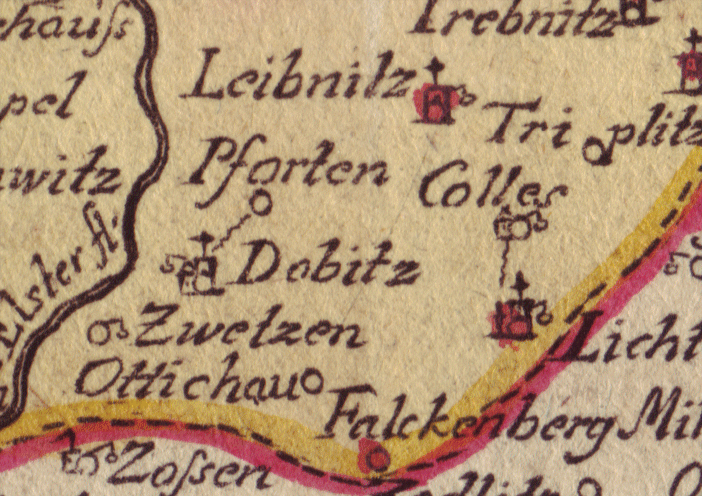 Trebnitz
chauſs
Leibnitz
pel
Tri plitz
Pforten
witz
Colles
Elster fl:
Dobitz
Zwetzen
Licht
Ottichau
Falckenberg
Mil
Zoſsen